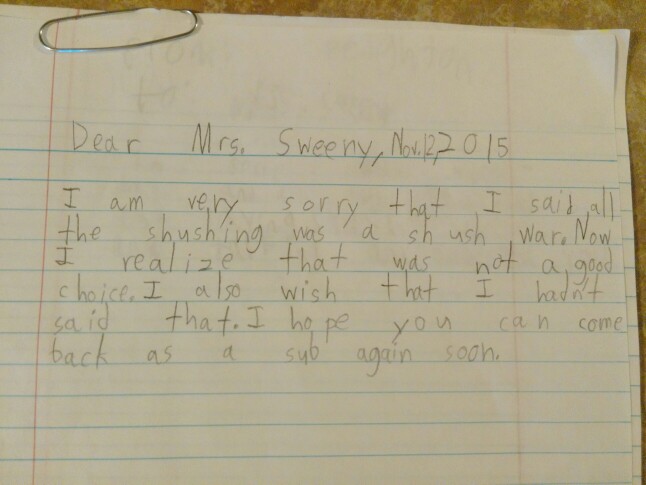 Dear Mrs. Sweeny, Nov. 12, 2015
I am very sorry that I said all
the shushing was a shush war. Now
I realize that was not a good
choice. I also wish that I hadn't
said that. I hope you can come
back as a sub again soon.